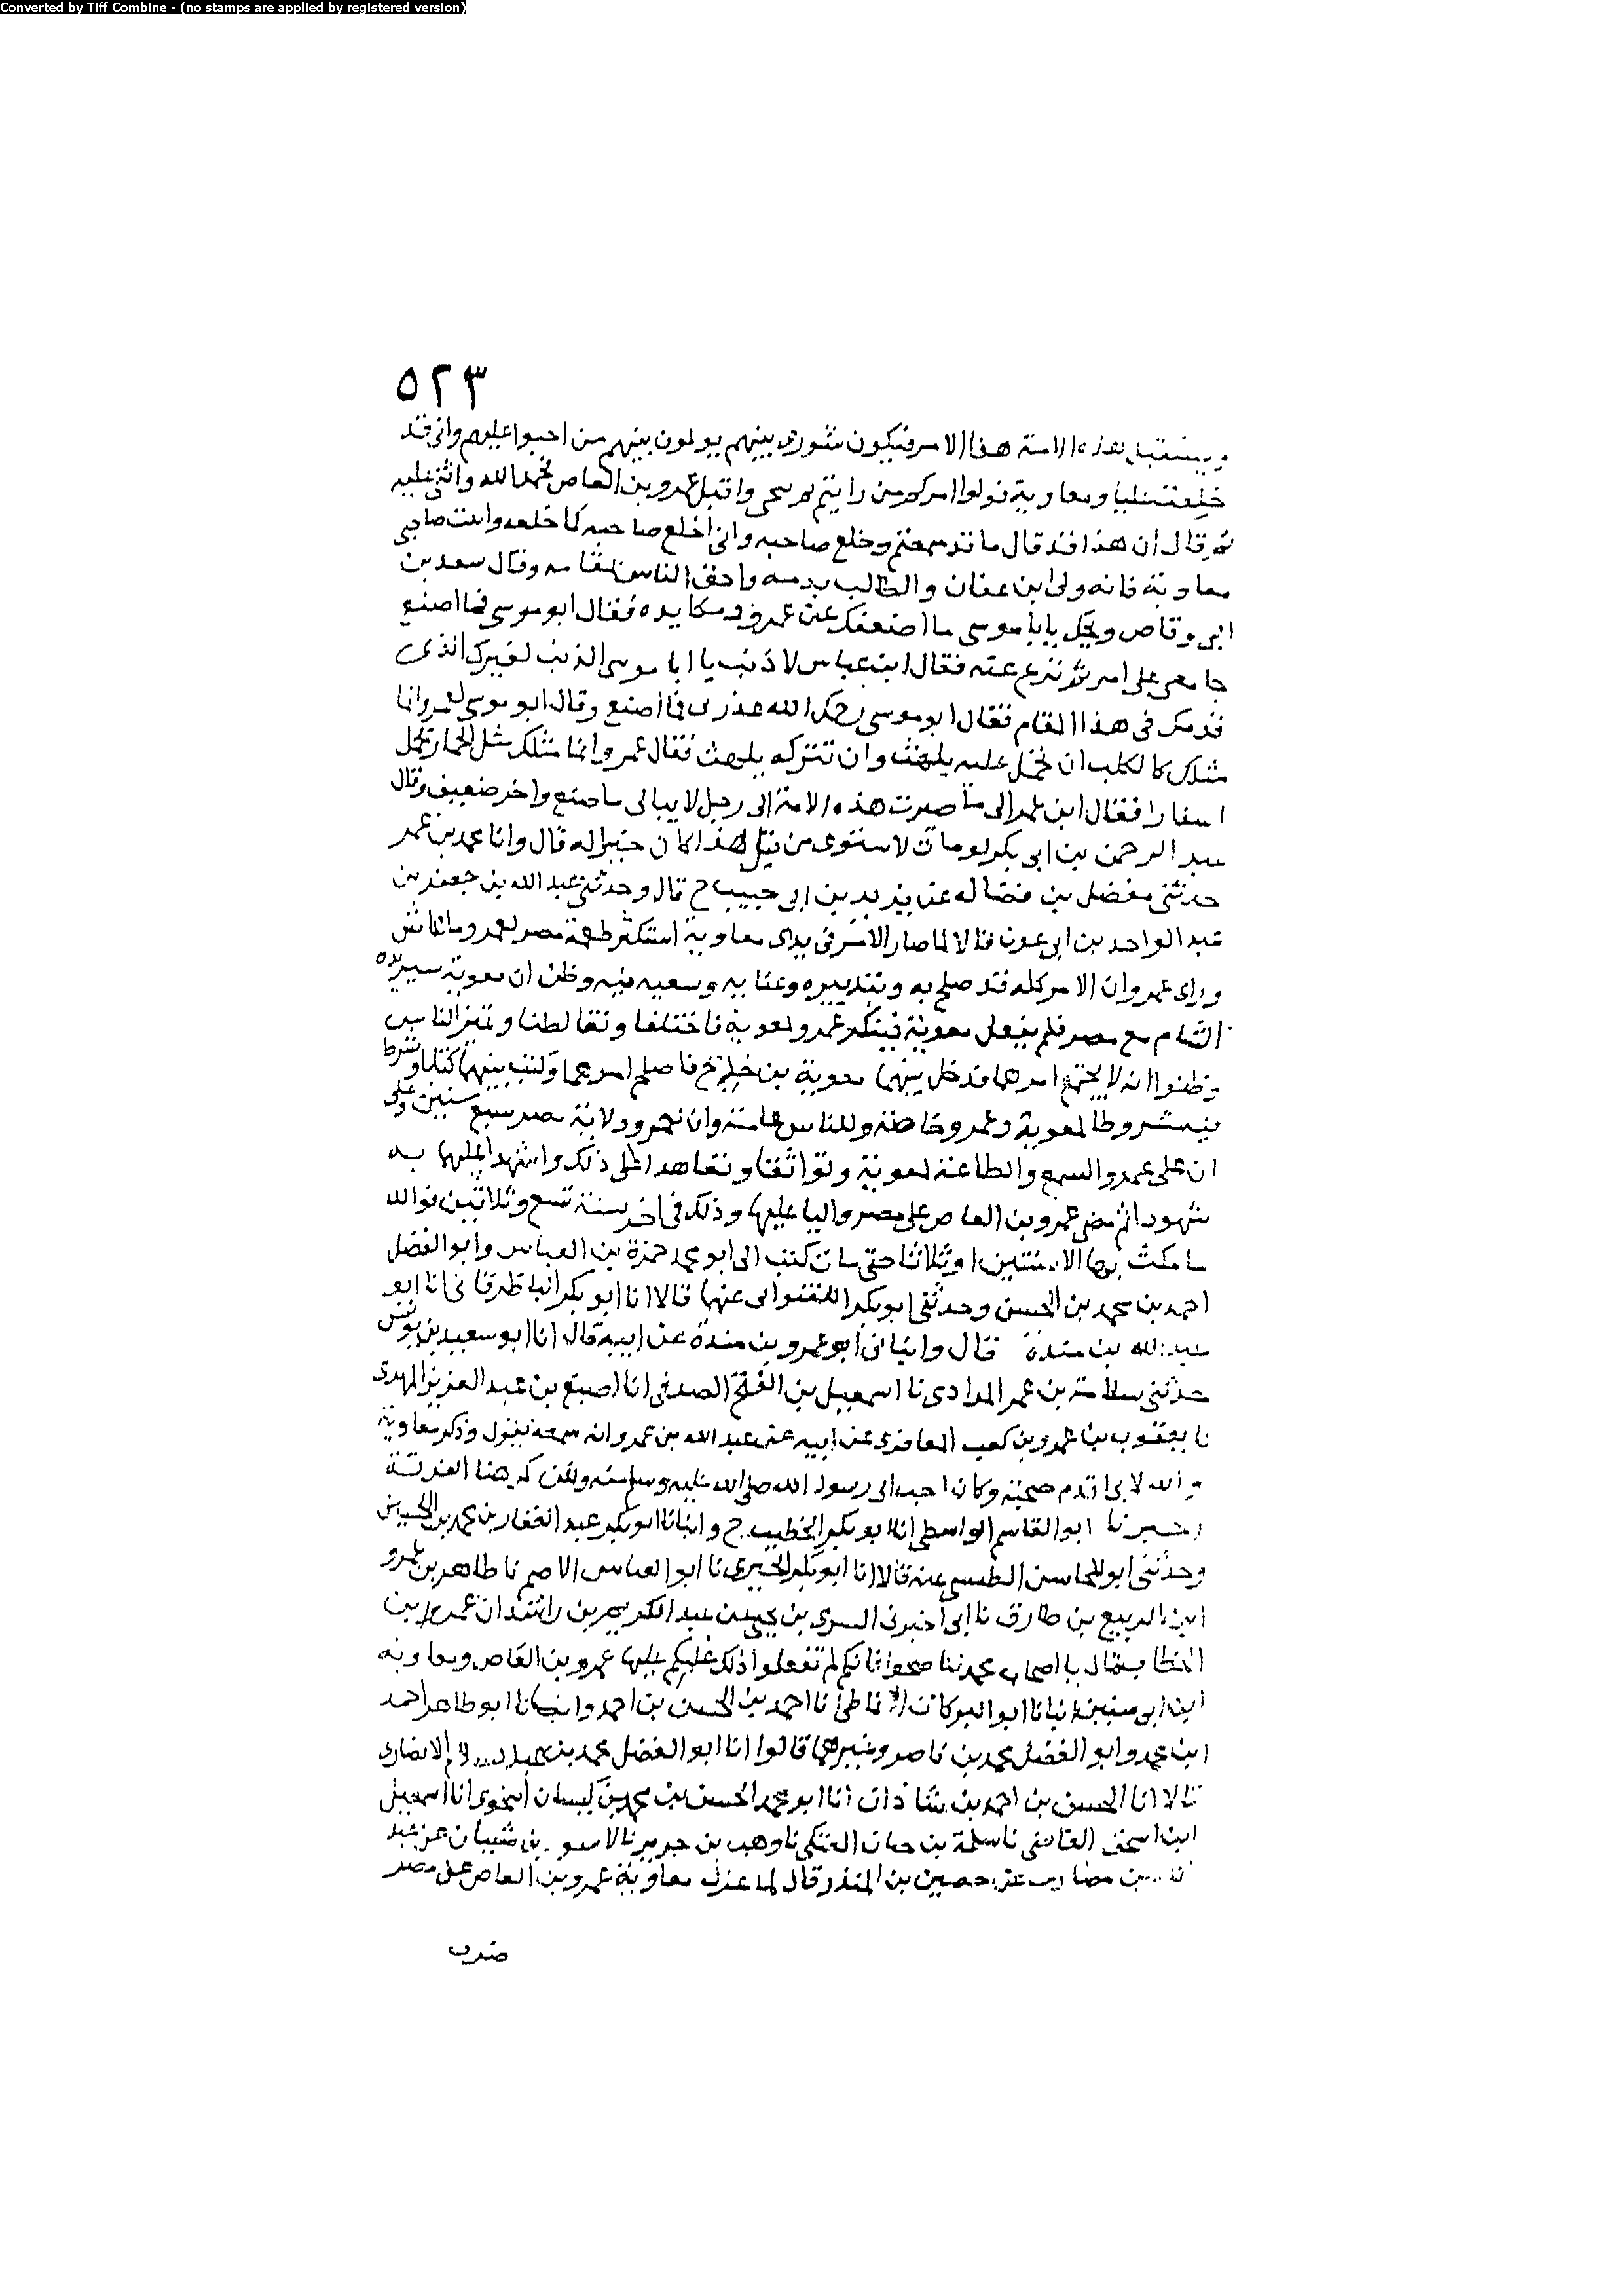 Converted by Tiff Combine - (no stamps are applied by registered version)
٥٢٣
ويستقبل هذه الامة هذا الامر فيكون شورى بينهم يولون بينهم من احبوا عليهم وانى قد
خلعت عليا ومعاوية فولوا امركم من رايتم ثم تنحى واقبل عمرو بن العاص فحمد الله واثنى عليه
ثم قال ان هذا قد قال ما قد سمعتم وخلع صاحبه وانى اخلع صاحبه كما خلعه واثبت صاحبى
معاوية فانه ولى ابن عفان والطالب بدمه واحق الناس بمقامه وقال سعد بن
ابى وقاص ويحك يابا موسى ما اضعفك عن عمرو ومكايده فقال ابو موسى فما اصنع
جامعنى على امر ثم نزع عنه فقال ابن عباس لا ذنب يا ابا موسى الذنب لغيرك الذى
قدمك فى هذا المقام فقال ابو موسى رحمك الله غدرنى فما اصنع وقال ابو موسى لعمرو انما
مثلك كالكلب ان تحمل عليه يلهث وان تتركه يلهث فقال عمرو انما مثلك مثل الحمار يحمل
اسفارا فقال ابن عمر الى ما صيرت هذه الامة الى رجل لا يبالى ما صنع واخر ضعيف وقال
عبد الرحمن بن ابى بكر لو مات الاشعرى من قبل هذا كان خيرا له قال وانا محمد بن عمر
حدثنى مفضل بن فضالة عن يزيد بن ابى حبيب ح قال وحدثنى عبد الله بن جعفر عن
عبد الواحد بن ابى عون قالا لما صار الامر فى يدى معاوية استكثر طعمة مصر لعمرو ما عاش
وراى عمرو ان الامر كله قد صلح به وبتدبيره وعنايه وسعيه فيه وظن ان معوية سيزيده
الشام مع مصر فلم يفعل معوية فتنكر عمرو لمعوية فاختلفا وتغالظا وتميز الناس
وظنوا انه لا يجتمع امرهما فدخل بينهما معوية بن خديج فاصلح امرهما وكتب بينهما كتابا وشرط
فيه شروطا لمعوية وعمرو خاصة وللناس عامة وان لعمرو ولاية مصر سبع سنين وعلى
ان على عمرو السمع والطاعة لمعوية وتواثقا وتعاهدا على ذلك واشهدا عليهما به
شهودا ثم مضى عمرو بن العاص على مصر واليا عليها وذلك فى اخر سنة تسع وثلاثين فوالله
ما مكث بها الا سنتين او ثلاثا حتى مات كتب الى ابو محمد حمزة بن العباس وابو الفضل
احمد بن محمد بن الحسن وحدثنى ابو بكر اللفتوانى عنهما قالا انا ابو بكر الباطرقانى انا ابو
عبد الله بن مندة قال وانبانى ابو عمرو بن مندة عن ابيه قال انا ابو سعيد بن يونس
حدثنى سلامة بن عمر المرادى نا اسمعيل بن الفتح الصدفى انا اصبغ بن عبد العزيز المهدى
نا يعقوب بن عمرو بن كعب المعافرى عن ابيه عن عبد الله بن عمرو انه سمعه يقول وذكر معاوية
والله لابى اقدم صحبة وكان احب الى رسول الله صلى الله عليه وسلم منه ولكن كرهنا الفرقة
اخبرنا ابو القاسم الواسطى انا ابو بكر الخطيب ح وانبانا ابو بكر عبد الغفار بن محمد بن الحسين
وحدثنى ابو المحاسن الطبسى عنه قالا انا ابو بكر الحيرى نا ابو العباس الاصم نا طاهر بن عمرو
ابن الربيع بن طارق نا ابى اخبرنى السرى بن يحيى عن عبد الكريم بن راشد ان عمر بن
الخطاب قال يا اصحاب محمد تناصحوا فانكم لم تفعلوا ذلك غلبكم عليها عمرو بن العاص ومعاوية
ابن ابى سفين انبانا ابو البركات الانماطى انا احمد بن الحسن بن احمد وانبانا ابو طاهر احمد
ابن محمد وابو الفضل محمد بن ناصر وغيرهما قالوا انا ابو الفضل محمد بن الانصارى
قالا انا الحسن بن احمد بن شاذان انا ابو محمد الحسن بن محمد بن كيسان النحوى انا اسمعيل
ابن اسحق القاضى نا سلمة بن حيان العتكى نا وهب بن جرير نا الاسود بن شيبان عن عبد
الله بن مضارب عن حصين بن المنذر قال لما عزل معاوية عمرو بن العاص عن مصر
ضرب